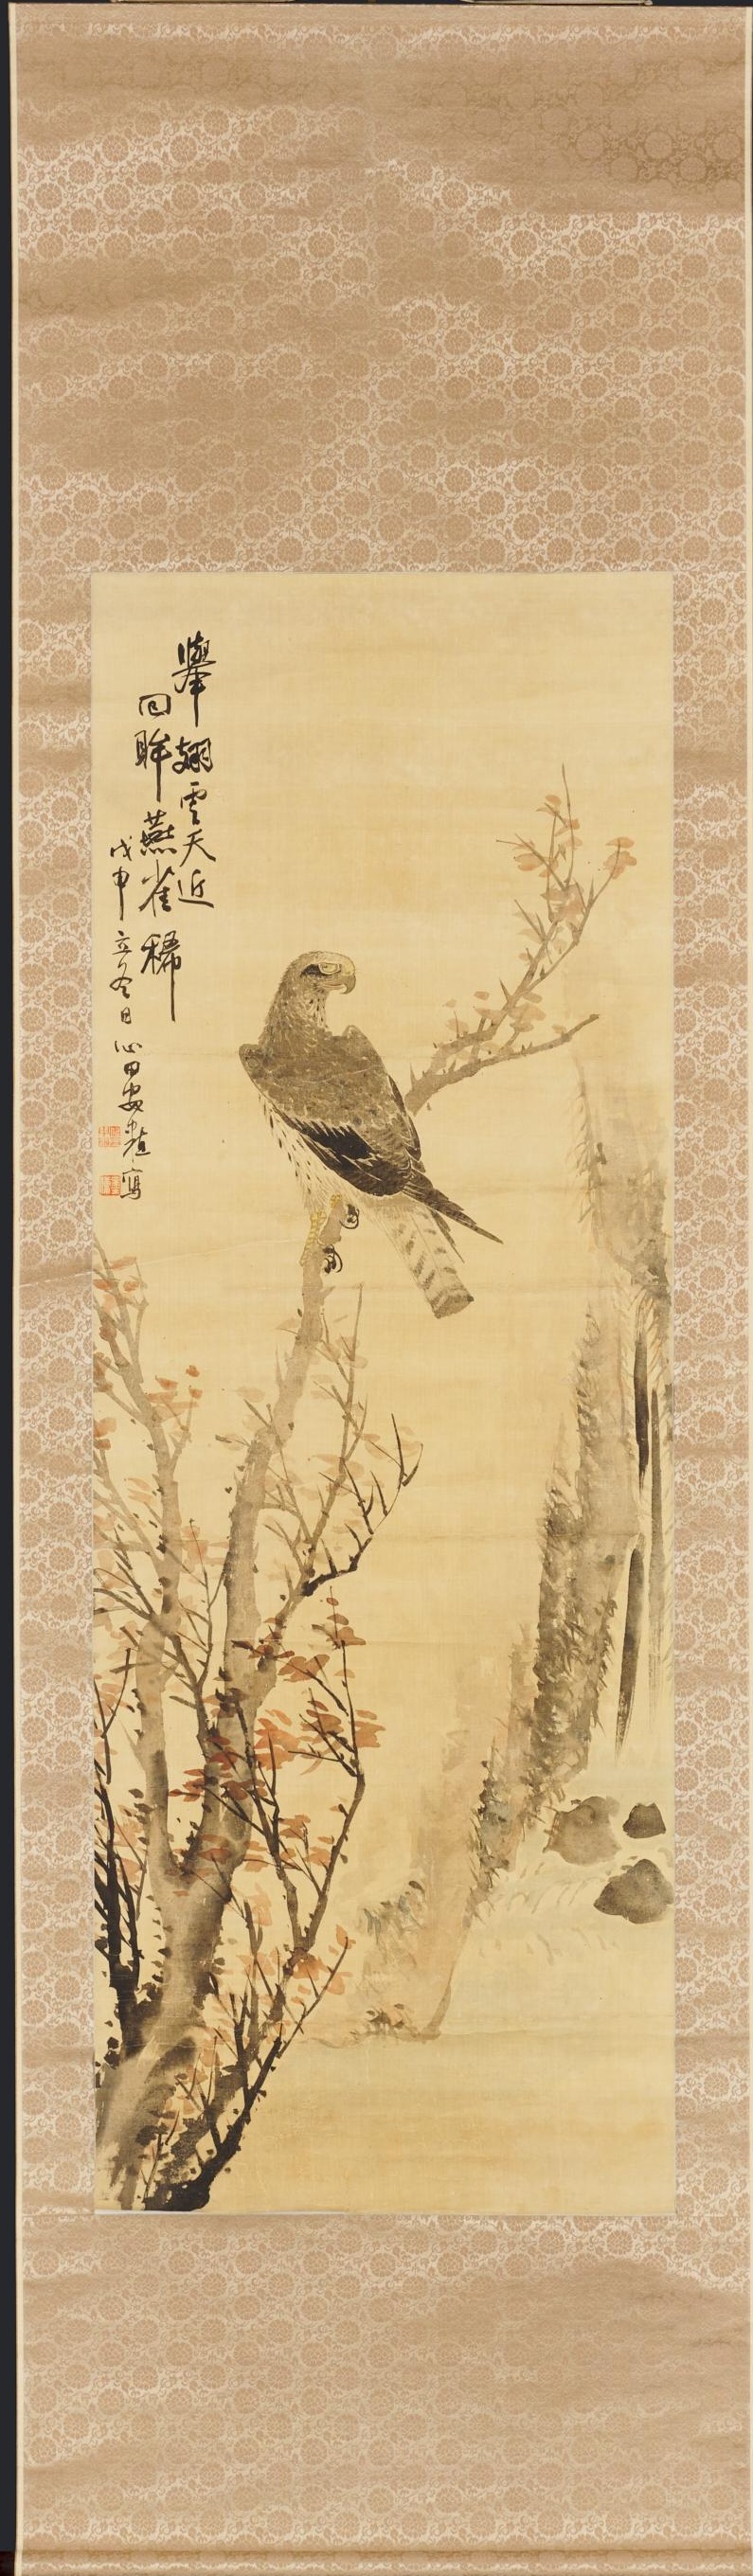 舉翅雲天近
回眸燕雀稀
戊申立冬日心田安中植寫